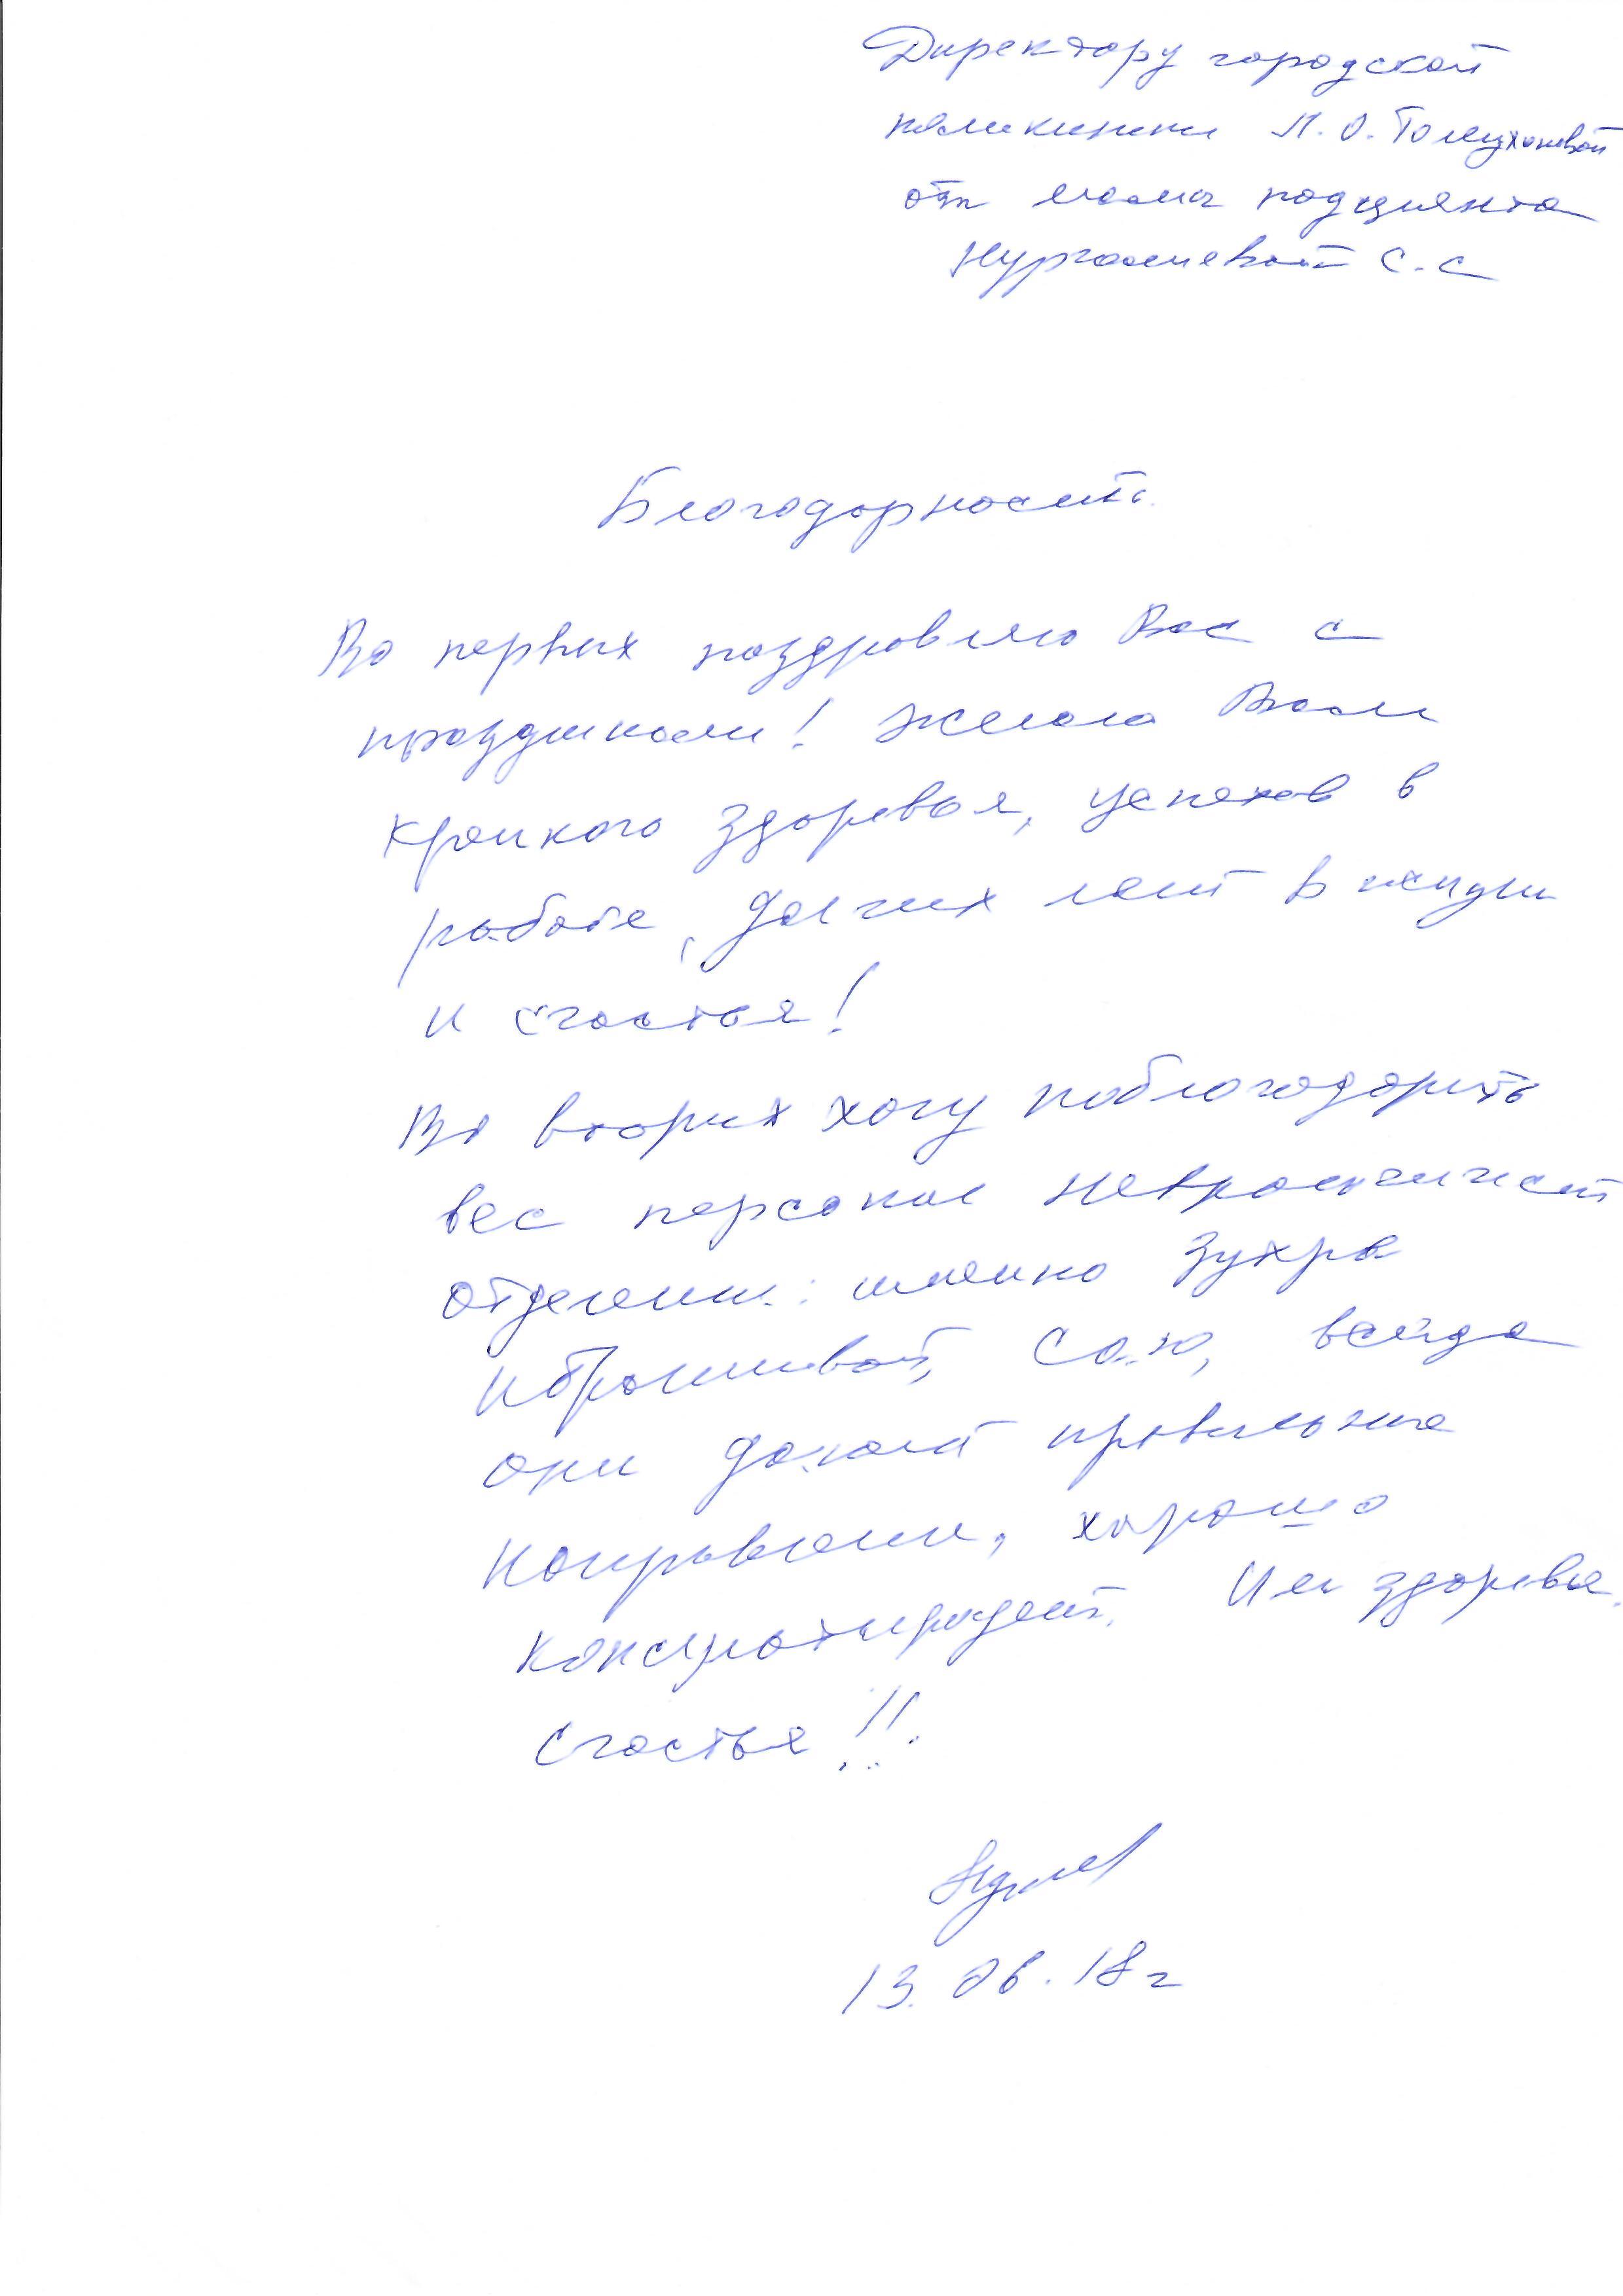 Директору городской
поликиники
от мамаподциента
Нургалиевой С.С
Благодарность.
Во первых поздровляю Вас с
праздником! Желаю Вам
крепкого здоровья, успехов в
работе, долгих лет в жизни
и счастья!
Во вторых хочу поблагодарить
вес персонал
отделении: именно Зухра
Ибрашевой, всегда
они правильные
направлении, хорошо
Им здоровье.
счастья!!.
13.06.18г